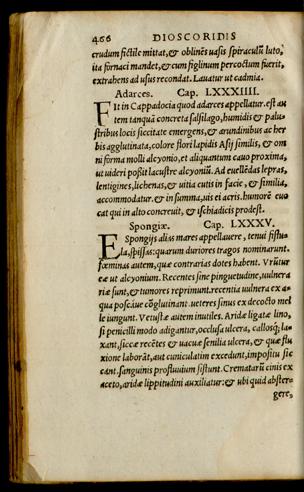 466 DIOSCORIDIS
crudum fictile mittat, & oblinẽs uasis spiraculũ luto,
ita fornaci mandet, & cum figlinum percoctum fuerit,
extrahens ad usus recondat. Lauatur ut cadmia.
Adarces. Cap. LXXXIIII.
FIt in Cappadocia quod adarces appellatur. est au
tem tanquã concreta salsilago, humidis & palu
stribus locis siccitate emergens, & arundinibus ac her
bis agglutinata, colore flori lapidis Asij similis, & om
ni forma molli alcyonio, et aliquantum cauo proxima,
ut uideri possit lacustre alcyoniũ. Ad euellẽdas lepras,
lentigines, lichenas, & uitia cutis in facie, & similia,
accommodatur. & in summa, uis ei acris. humorẽ euo
cat qui in alto concreuit, & ischiadicis prodest.
Spongiæ. Cap. LXXXV.
E Spongijs alias mares appellauere, tenui fistu
la, spissas: quarum duriores tragos nominarunt.
fœminas autem, quæ contrarias dotes habent. Vrũtur
eæ ut alcyonium. Recentes sine pinguetudine, uulnera
riæ sunt, & tumores reprimunt. recentia uulnera ex a-
qua posc.iue cõglutinant. ueteres sinus ex decocto mel
le iungunt. Vetustæ autem inutiles. Aridæ ligate lino,
si penicilli modo adigantur, occlusa ulcera, callosq; la-
xant. siccæ recẽtes & uacuæ senilia ulcera, & quæ flu
xione laborãt, aut cuniculatim excedunt, impositu sic
cant. sanguinis profluuium sistunt. Crematarũ cinis ex
aceto, aridæ lippitudini auxiliatur: & ubi quid abster-
gere,